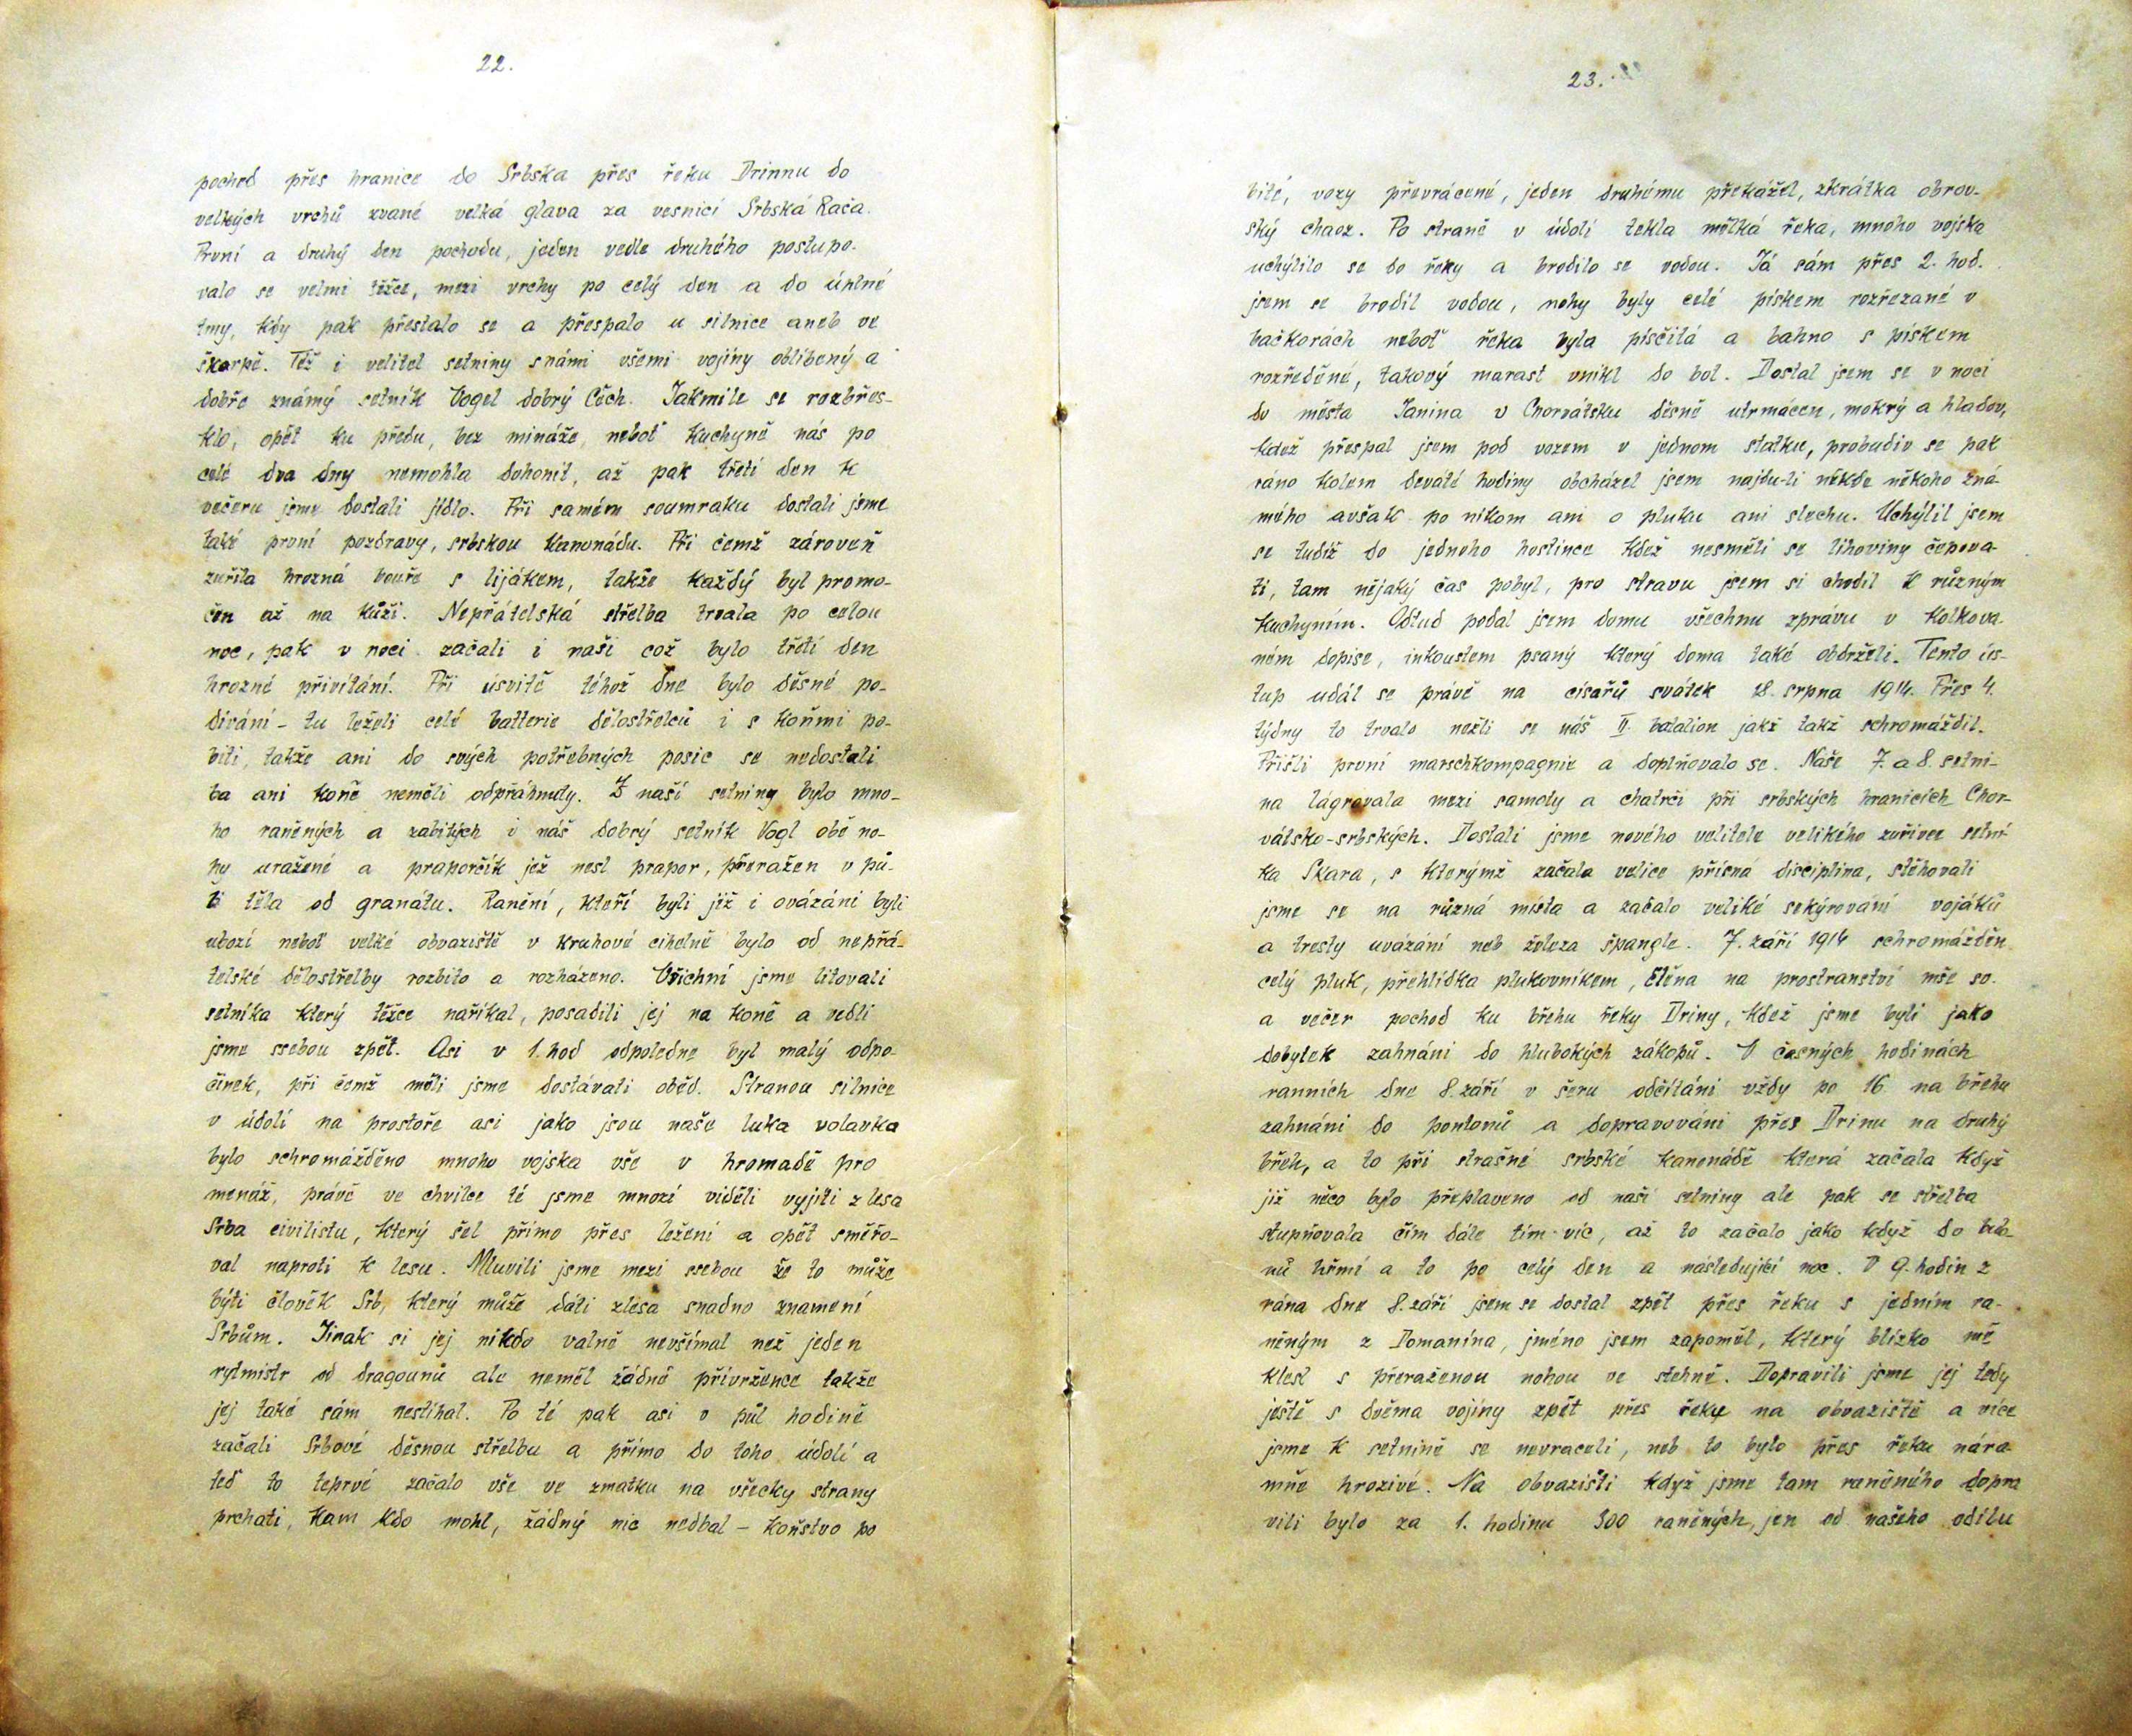 22.
pochod přes hranice do Srbska přes řeku Drinnu do
velkých vrchů zvané velká glava za vesnicí Srbská Rača.
První a druhý den pochodu, jeden vedle druhého postupo-
valo se velmi těžce, mezi vrchy po celý den a do úplné
tmy, kdy pak přestalo se a přespalo u silnice aneb ve
škarpě. Též i velitel setniny s námi všemi vojíny oblíbený a
dobře známý setník Vogel dobrý Čech. Jakmile se rozbřes-
klo, opět ku předu, bez mináže, neboť kuchyně nás po
celé dva dny nemohla dohonit, až pak třetí den k
večeru jsme dostali jídlo. Při samém soumraku dostali jsme
také první pozdravy, srbskou kanonádu. Při čemž zároveň
zuřila hrozná bouře s lijákem, takže každý byl promo-
čen až na kůži. Nepřátelská střelba trvala po celou
noc, pak v noci začali i naši což bylo třetí den
hrozné přivítání. Při úsvitě téhož dne bylo děsné po-
dívání - tu leželi celé batterie dělostřelců i s koňmi po-
biti, takže ani do svých potřebných posic se nedostali
ba ani koně neměli odpřáhnuty. Z naší setniny bylo mno-
ho raněných a zabitých i náš dobrý setník Vogl obě no-
hy uražené a praporčík jež nesl prapor, přeražen v pů-
li těla od granátu. Ranění, kteří byli již i ovázáni byli
ubozí neboť velké obvaziště v kruhové cihelně bylo od nepřá-
telské dělostřelby rozbito a rozházeno. Všichni jsme litovali
setníka který těžce naříkal, posadili jej na koně a vedli
jsme ssebou zpět. Asi v 1. hod odpoledne byl malý odpo-
činek, při čemž měli jsme dostávati oběd. Stranou silnice
v údolí na prostoře asi jako jsou naše luka volavka
bylo schromážděno mnoho vojska vše v hromadě pro
menáž, právě ve chvilce té jsme mnozí viděli vyjíti z lesa
Srba civilistu, který šel přímo přes ležení a opět směřo-
val naproti k lesu. Mluvili jsme mezi ssebou že to může
býti člověk Srb, který může dáti zlesa snadno znamení
Srbům. Jinak si jej nikdo valně nevšímal než jeden
rytmistr od dragounů ale neměl žádné přívržence takže
jej také sám nestíhal. Po té pak asi v půl hodině
začali Srbové děsnou střelbu a přímo do toho údolí a
teď to teprvé začalo vše ve zmatku na všecky strany
prchati, kam kdo mohl, žádný nic nedbal - koňstvo po
23.
bité, vozy převrácené, jeden druhému překážel, zkrátka obrov-
ský chaoz. Po straně v údolí tekla mělká řeka, mnoho vojska
uchýlilo se do řeky a brodilo se vodou. Já sám přes 2. hod.
jsem se brodil vodou, nohy byly celé pískem rozřezané v
bačkorách neboť řeka byla písčitá a bahno s pískem
rozředěné, takový marast vnikl do bot. Dostal jsem se v noci
do města Janina v Chorvátsku děsně utrmácen, mokrý a hladov,
kdež přespal jsem pod vozem v jednom statku, probudiv se pak
ráno kolem deváté hodiny obcházel jsem najdu-li někde někoho zná-
mého avšak po nikom ani o pluku ani slechu. Uchýlil jsem
se tudíž do jednoho hostince kdež nesměli se lihoviny čepova-
ti, tam nějaký čas pobyl, pro stravu jsem si chodil k různým
kuchyním. Odtud podal jsem domu všechnu zprávu v kolkova-
ném dopise, inkoustem psaný který doma také obdrželi. Tento ús-
tup udál se právě na císařů svátek 18. srpna 1914. Přes 4.
týdny to trvalo nežli se náš II. batalion jakž takž schromáždil.
Přišli první marschkompagnie a doplňovalo se. Naše 7. a 8. setni-
na lágrovala mezi samoty a chatrči při srbských hranicích Chor-
vátsko-srbských. Dostali jsme nového velitele velikého zuřivce setní-
ka Skara, s kterýmž začala velice přísná disciplina, stěhovali
jsme se na různá místa a začalo veliké sekýrování vojáků
a tresty uvázání neb železa špangle. 7. září 1914 schromážděn
celý pluk, přehlídka plukovníkem, čtěna na prostranství mše sv.
a večer pochod ku břehu řeky Driny, kdež jsme byli jako
dobytek zahnáni do hlubokých zákopů. V časných hodinách
ranních dne 8. září v šeru odčítáni vždy po 16 na břehu
zahnáni do pontonů a dopravováni přes Drinu na druhý
břeh, a to při strašné srbské kanonádě která začala když
již něco bylo přeplaveno od naší setniny ale pak se střelba
stupňovala čím dále tím víc, až to začalo jako když do bub-
nů hřmí a to po celý den a následující noc. V 9. hodin z
rána dne 8. září jsem se dostal zpět přes řeku s jedním ra-
něným z Domanína, jméno jsem zapoměl, který blízko mě
klesl s přeraženou nohou ve stehně. Dopravili jsme jej tedy
ještě s dvěma vojíny zpět přes řeku na obvaziště a více
jsme k setnině se nevraceli, neb to bylo přes řeku nára-
mně hrozivé. Na obvazišti když jsme tam raněného dopra
vili bylo za 1. hodinu 300 raněných, jen od našeho odílu